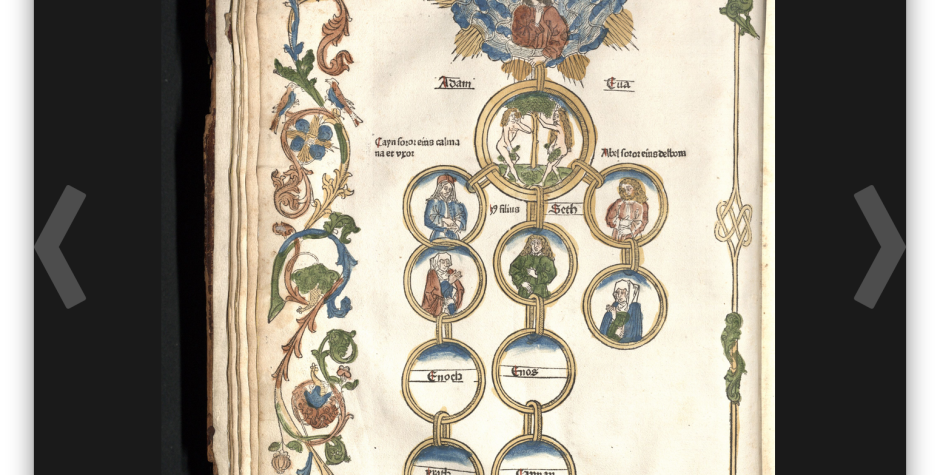 Adam
Eua
Cayn soror eius calma
na et vxor
Abel soror eius delbora
filius
Seth
Enoch
Enos